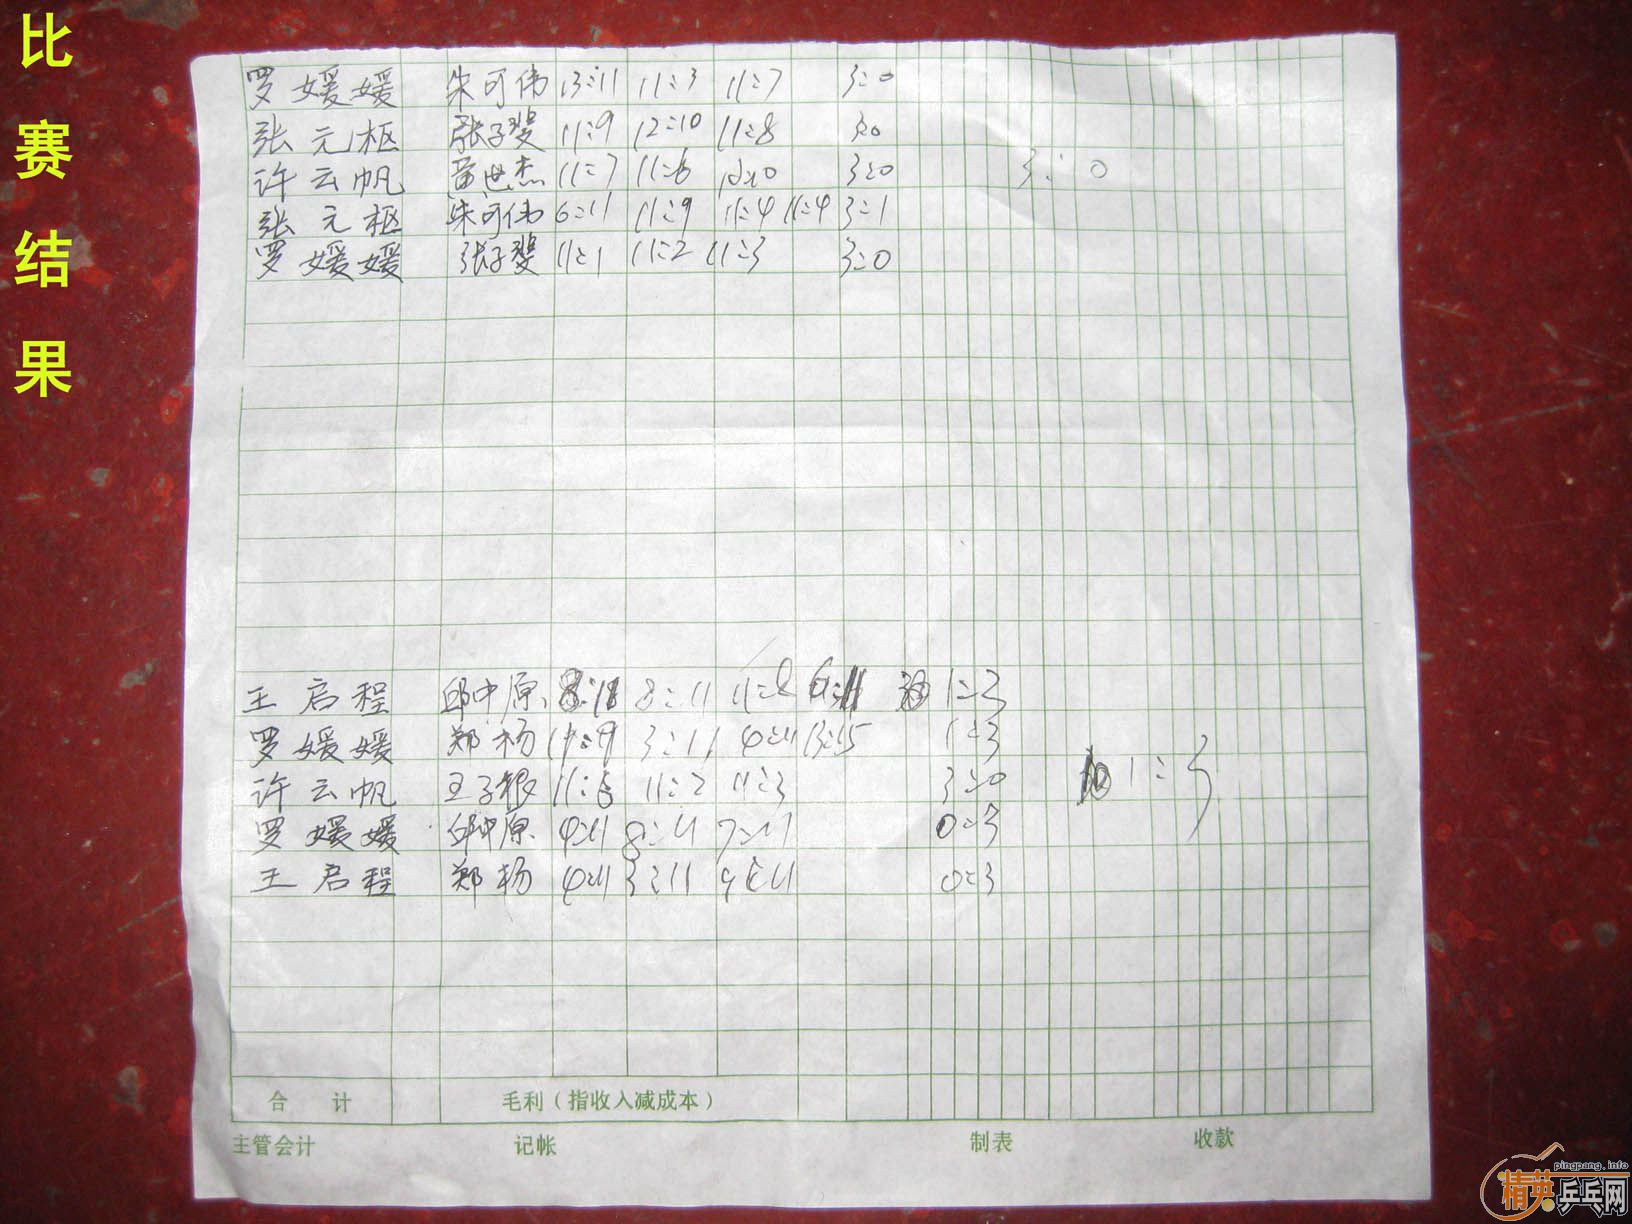 比赛结果
罗媛媛 朱可伟 13:11 11:3 11:7 3:0
张元枢 张子斐 11:9 12:10 11:8 3:0
许云帆 苗世杰 11:7 11:6 3:0 3:0
张元枢 朱可伟 6:11 11:9 11:4 11:4 3:1
罗媛媛 张子斐 11:1 11:2 11:3 3:0
王启程 邱中原 8:11 11:8 1:3
罗媛媛 郑杨 11:9 3:11 4:11 13:15 1:3
许云帆 王子 11:6 11:2 11:3 3:0 1:3
罗媛媛 邱中原 4:11 8:11 7:11 0:3
王启程 郑杨 4:11 3:11 9:11 0:3
合计 毛利(指收入减成本)
主管会计 记帐 制表 收款
pingpang.info
精英乒乓网